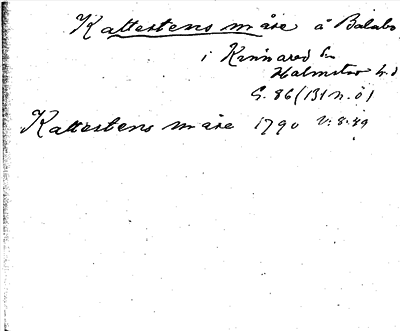 Kattestens måse å Balabo
i Kinnared sn
Halmstad h.d
G. 86 (131 n. ö)
Kattestens måse 1790 v. 8. 49